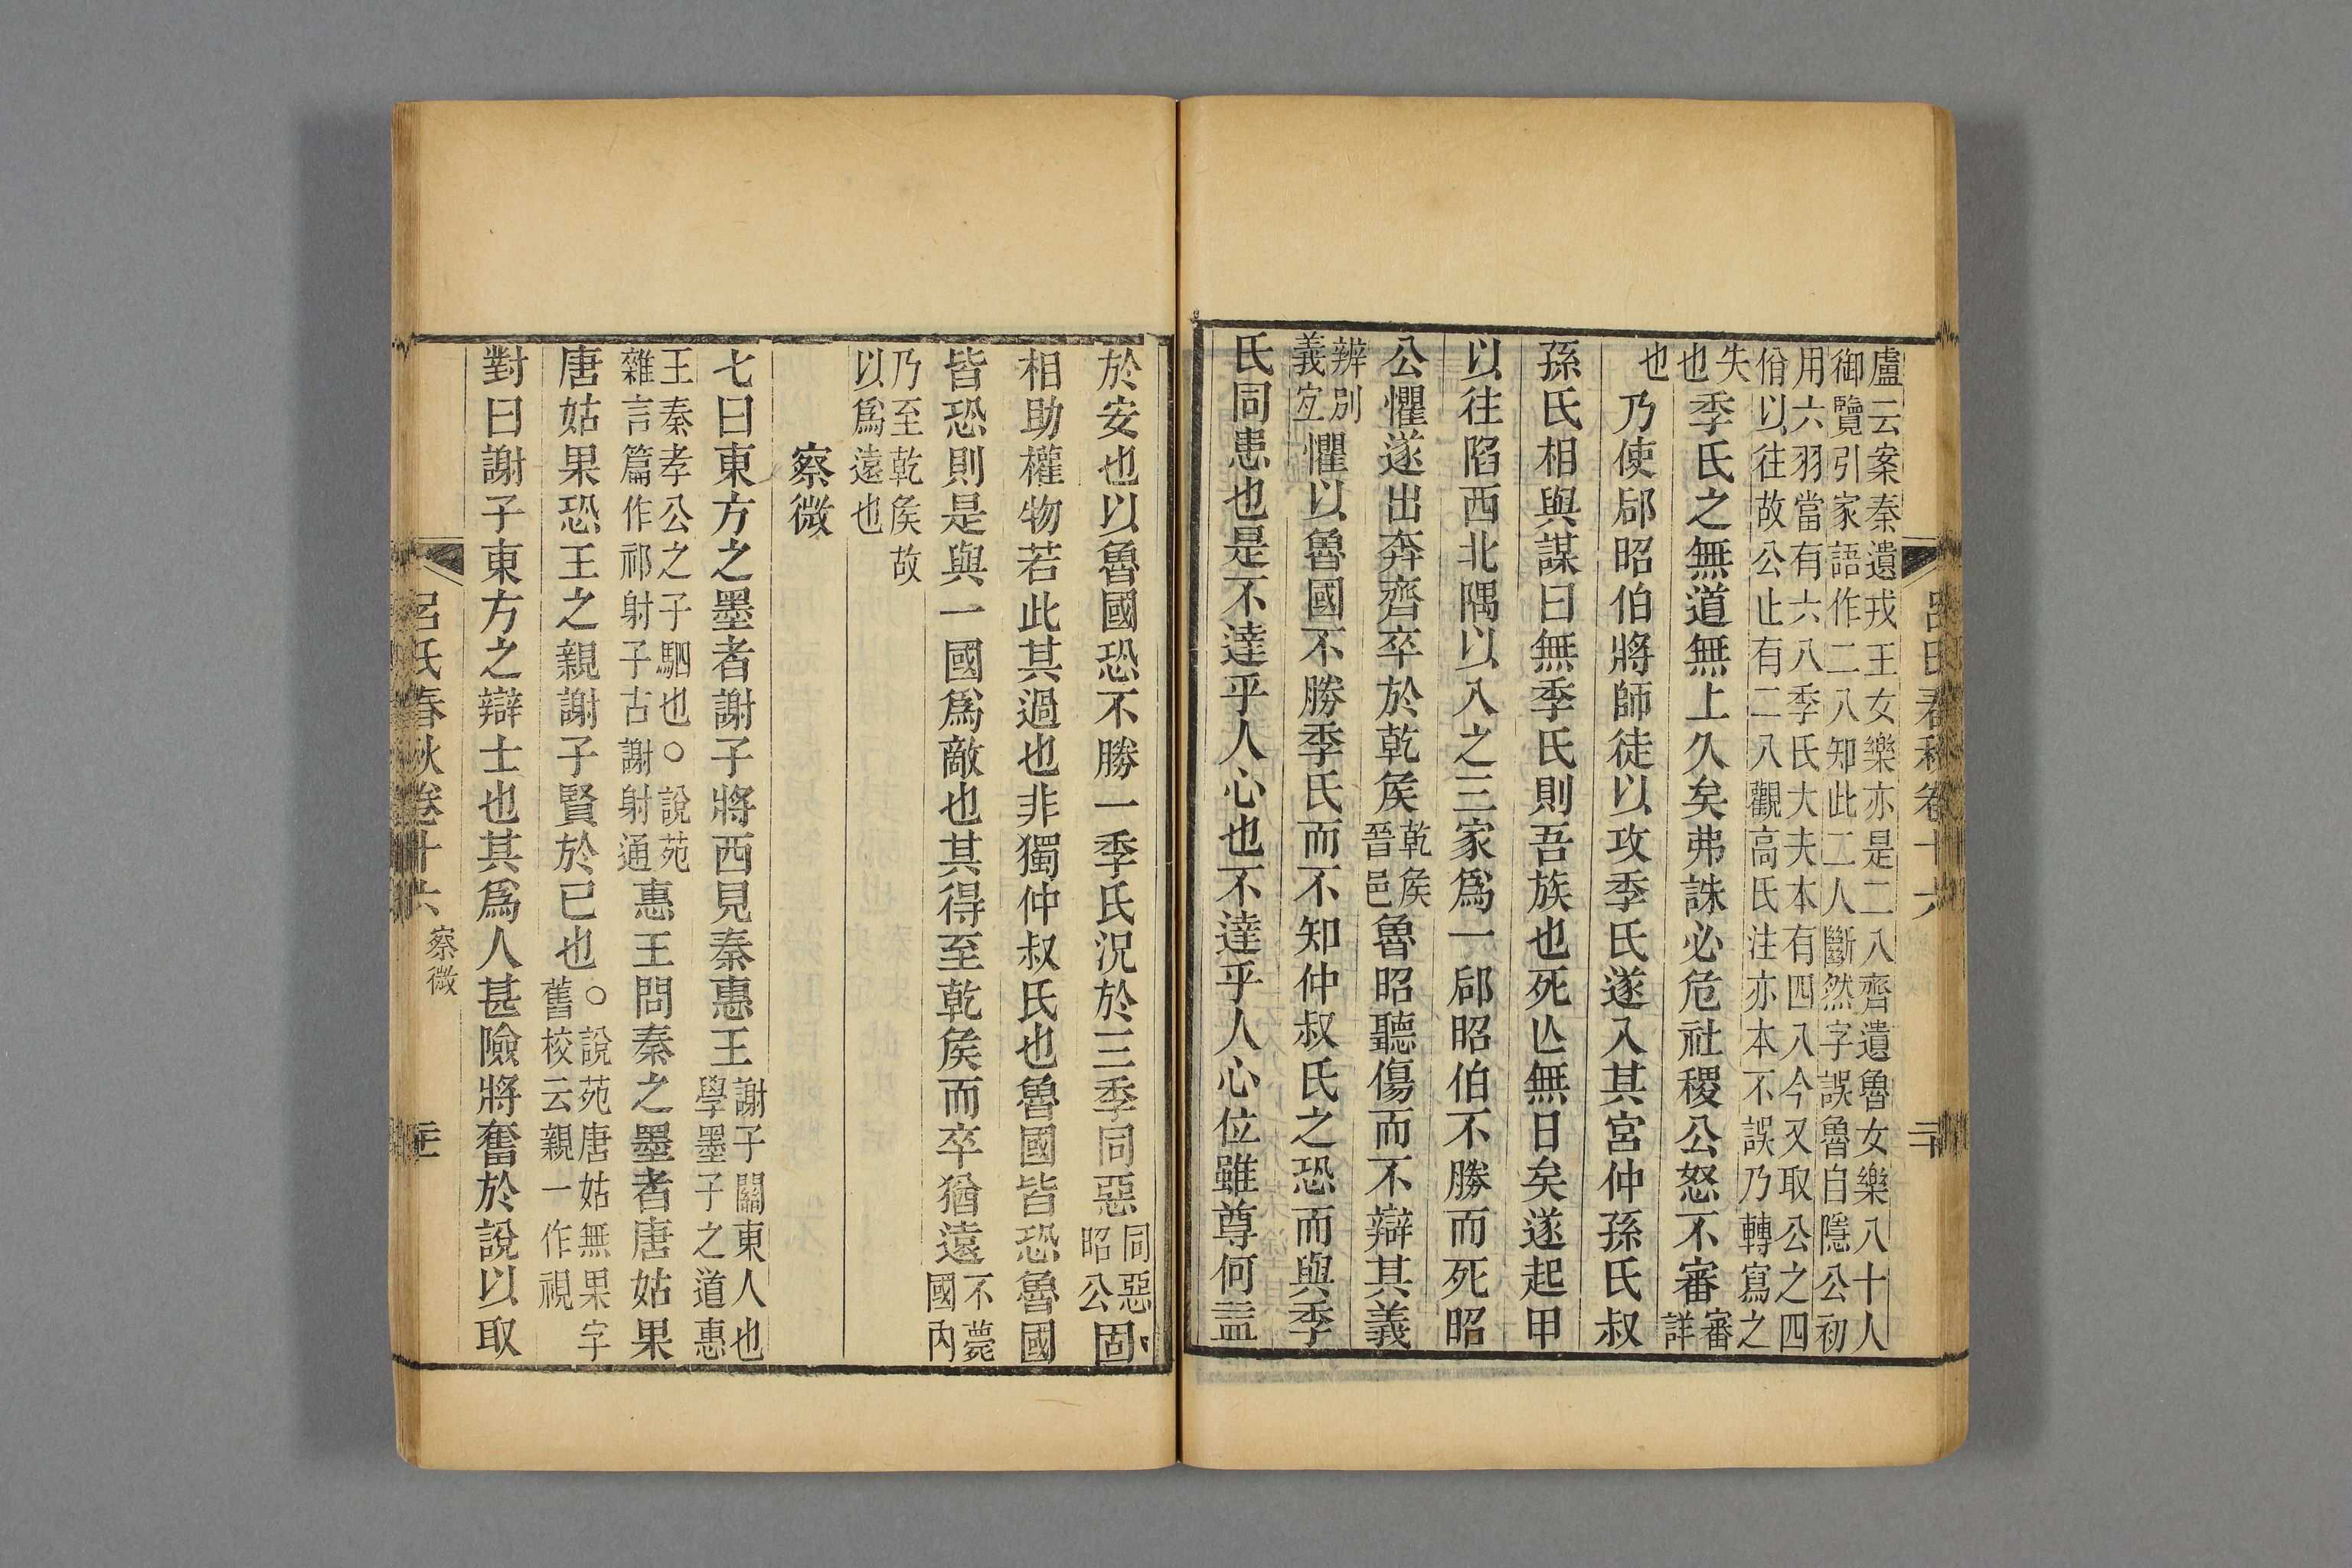 呂氏春秋卷十六
二十
盧云案秦遺戎王女樂亦是二八齊遺魯女樂八十人
御覽引家語作二八知此二人斷然字誤魯自隱公初
用六羽當有六八季氏大夫本有四八今又取公之四
佾以往故公止有二八觀高氏注亦本不誤乃轉寫之
失也季氏之無道無上久矣弗誅必危社稷公怒不審審詳
也乃使郈昭伯將師徒以攻季氏遂入其宮仲孫氏叔
孫氏相與謀曰無季氏則吾族也死亾無日矣遂起甲
以往陷西北隅以入之三家爲一郈昭伯不勝而死昭
公懼遂出奔齊卒於乾矦乾矦晉邑魯昭聽傷而不辯其義
辨別義宐懼以魯國不勝季氏而不知仲叔氏之恐而與季
氏同患也是不達乎人心也不達乎人心位雖尊何益
於安也以魯國恐不勝一季氏況於三季同惡同惡昭公固
相助權物若此其過也非獨仲叔氏也魯國皆恐魯國
皆恐則是與一國爲敵也其得至乾矦而卒猶遠不薨國內
乃至乾矦故以爲遠也
察微
七曰東方之墨者謝子將西見秦惠王謝子關東人也學墨子之道惠
王秦孝公之子駟也○說苑雜言篇作祁射子古謝射通惠王問秦之墨者唐姑果
唐姑果恐王之親謝子賢於已也○說苑唐姑無果字舊校云親一作視
對曰謝子東方之辯士也其爲人甚險將奮於說以取
呂氏春秋卷十六
察微